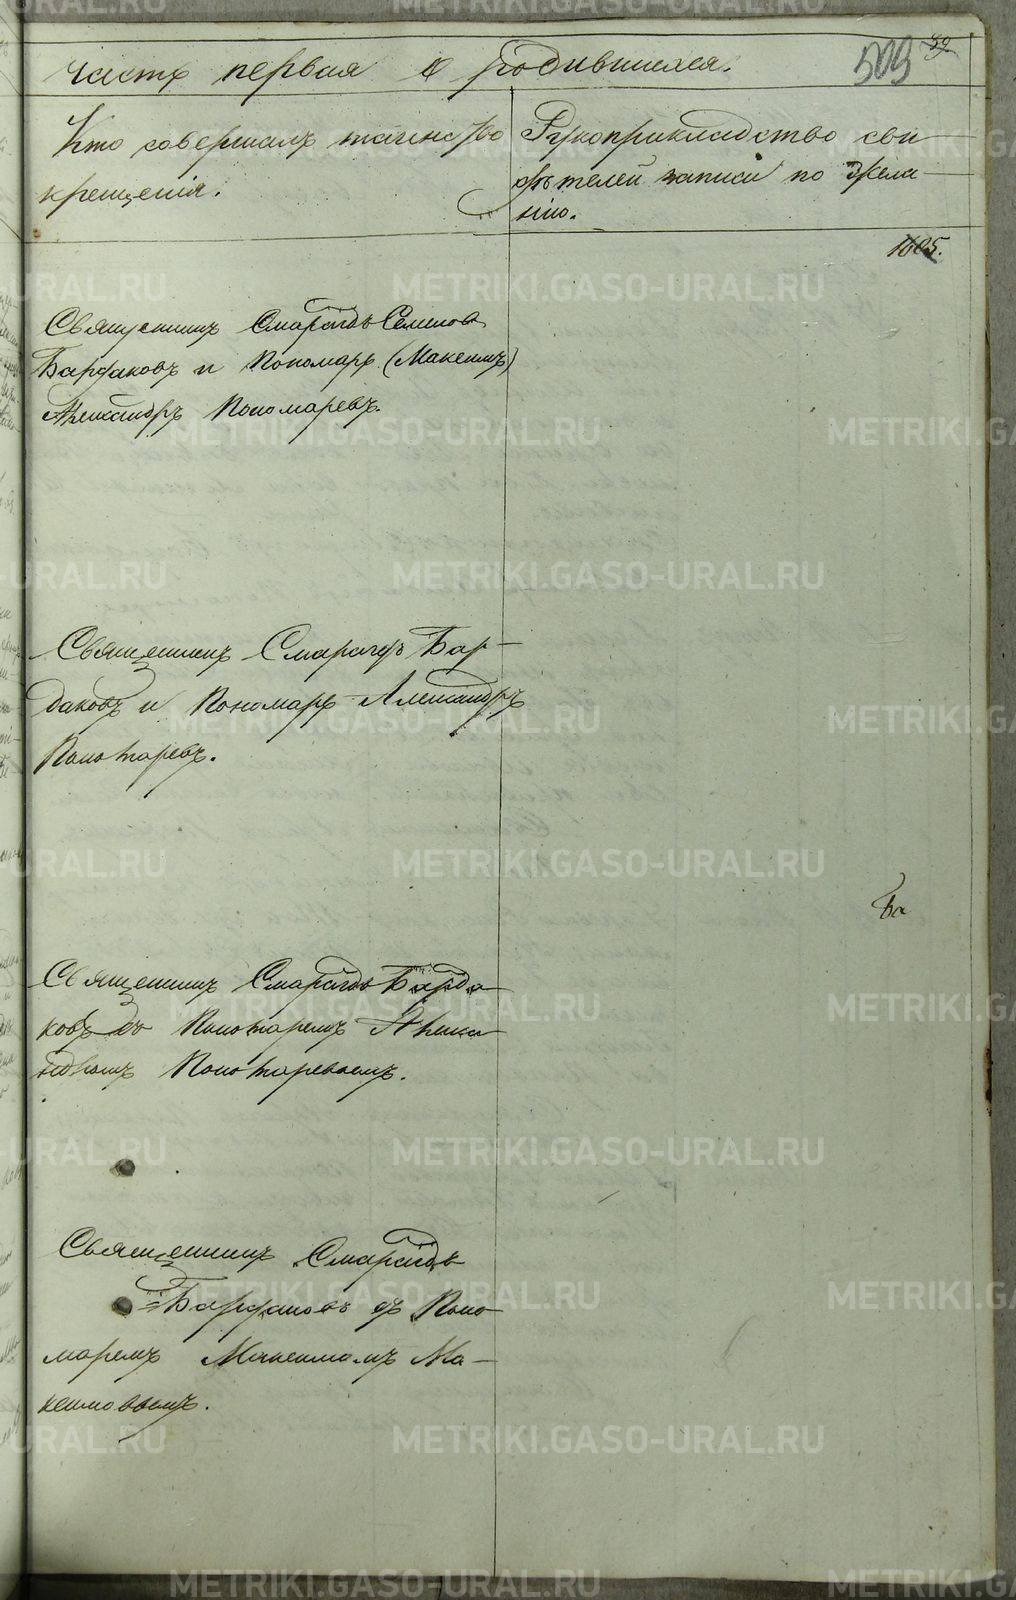 часть первая о родившихся.
509
39
Кто совершалъ таинство
крещенія.
Рукоприкладство сви
дѣтелей записи по жела
нію.
1605.
Священникъ Смарагдъ Семенов
Бардаковъ и Пономарь (Максимъ)
Александръ Пономаревъ.
Священникъ Смарагдъ Бар-
даковъ и Пономарь Александръ
Пономаревъ.
Ба
Священникъ Смарагдъ Барда
ковъ съ Пономаремъ Алекса
ндромъ Пономаревымъ.
Священникъ Смарагдъ
=Бардаковъ съ Поно
маремъ Максимомъ Ма-
ксимовымъ.
METRIKI.GASO-URAL.RU